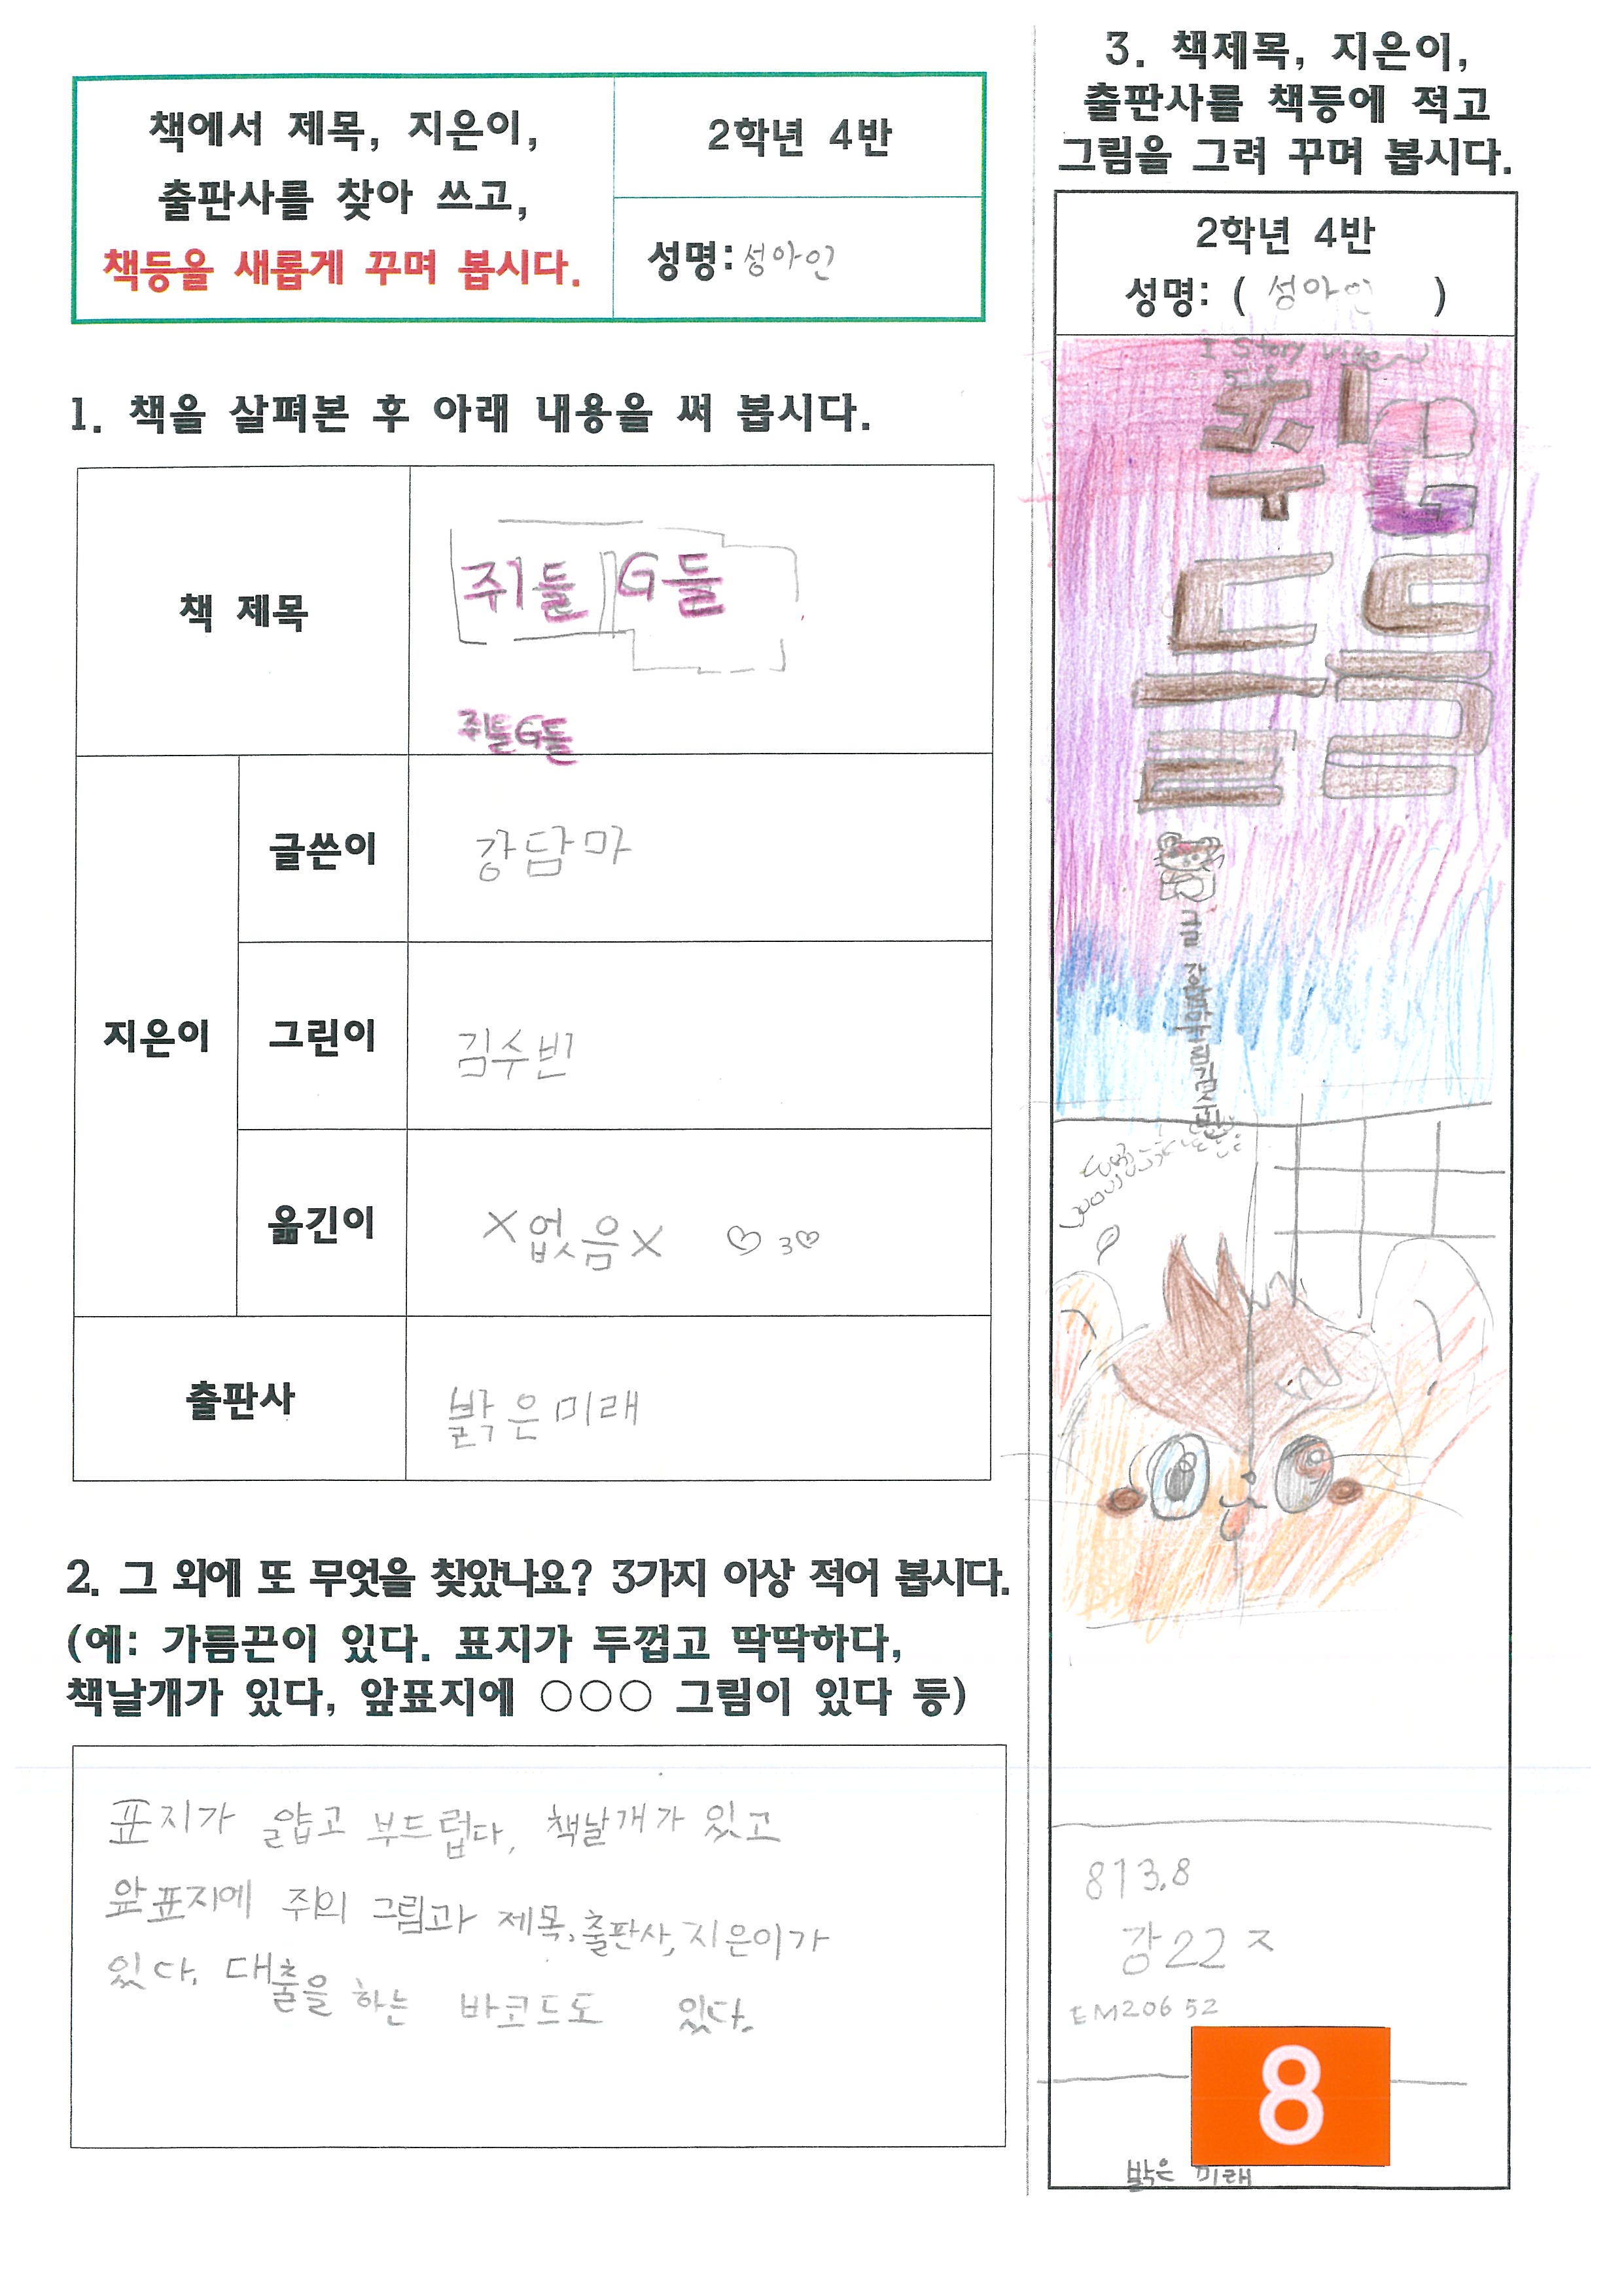 책에서 제목, 지은이,
출판사를 찾아 쓰고,
책등을 새롭게 꾸며 봅시다.
2학년 4반
성명: 성아인
1. 책을 살펴본 후 아래 내용을 써 봅시다.
책 제목
쥐들 G들
쥐들G들
지은이
글쓴이
강담마
그린이
김수빈
옮긴이
X없음X 3
출판사
밝은미래
2. 그 외에 또 무엇을 찾았나요? 3가지 이상 적어 봅시다.
(예: 가름끈이 있다. 표지가 두껍고 딱딱하다,
책날개가 있다, 앞표지에 ○○○ 그림이 있다 등)
표지가 얇습고 부드럽다, 책날개가 있고
앞표지에 쥐의 그림과 제목, 출판사, 지은이가
있다. 대출을 하는 바코드도 있다.
3. 책제목, 지은이,
출판사를 책등에 적고
그림을 그려 꾸며 봅시다.
2학년 4반
성명: ( 성아인 )
I Story
쥐들
G들
글 강담마 그림 김수빈
813.8
강22ㅈ
EM20652
8
밝은 미래